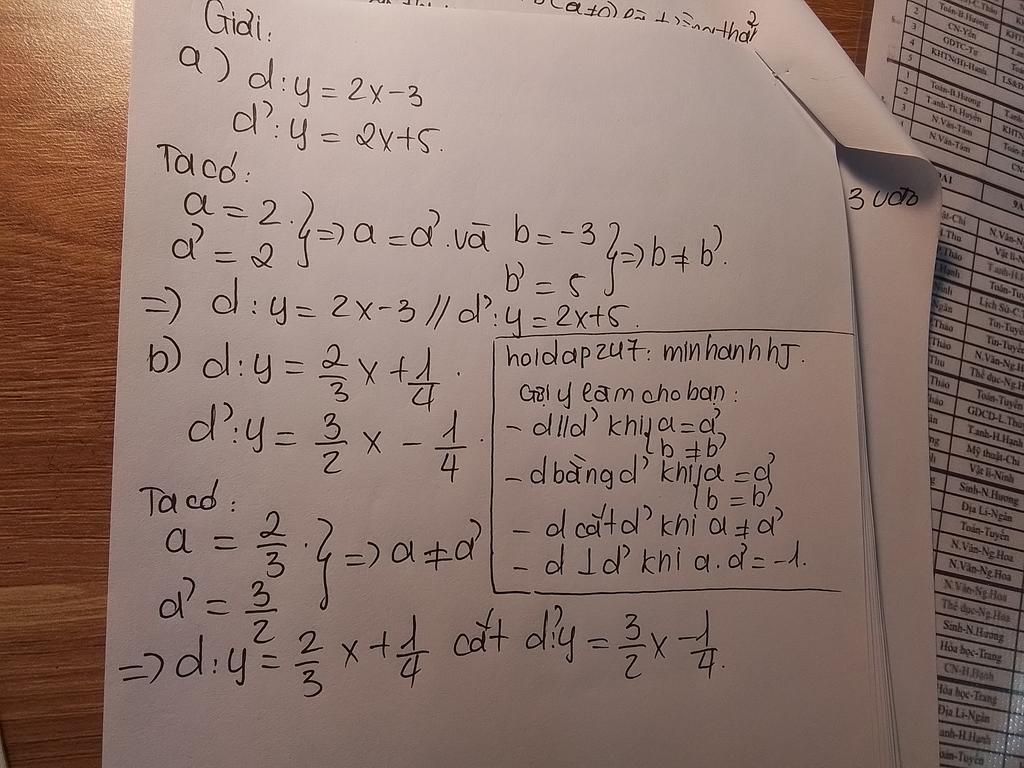 Giải.
a) d: y = 2x-3
d': y = 2x+5.
Ta có:
a = 2.
a' = 2 } => a = a' và b = -3
b' = 5 } => b ≠ b'.
=> d: y = 2x-3 // d': y = 2x+5.
b) d: y = 2/3 x + 1/4.
d': y = 3/2 x - 1/4.
Ta có:
a = 2/3.
a' = 3/2 } => a ≠ a'
=> d: y = 2/3 x + 1/4 cắt d': y = 3/2 x - 1/4.
hoidap247: minhanhhJ.
Gợi ý làm cho bạn:
- d // d' khi { a = a'
b ≠ b'
- d bằng d' khi { a = a'
b = b'
- d cắt d' khi a ≠ a'
- d ⊥ d' khi a. a' = -1.
3 vào
Toán-B.Hương
CN-Yến
GDTC-Tư
KHTN(H)-Hạnh
Toán-B.Hương
T.anh-Th.Huyền
N.Văn-Tâm
N.Văn-Tâm
Lịch Sử-C.
Toán-Tuyến
GDCD-L.Thủy
T.anh-H.Hạnh
Mỹ thuật-Chi
Vật lí-Ninh
Sinh-N.Hương
Địa Lí-Ngân
Toán-Tuyến
N.Văn-Ng.Hoa
N.Văn-Ng.Hoa
Thể dục-Ng.Hoa
Sinh-N.Hương
Hóa học-Trang
CN-H.Hạnh
Hóa học-Trang
Địa Lí-Ngân
anh-H.Hạnh
oán-Tuyến